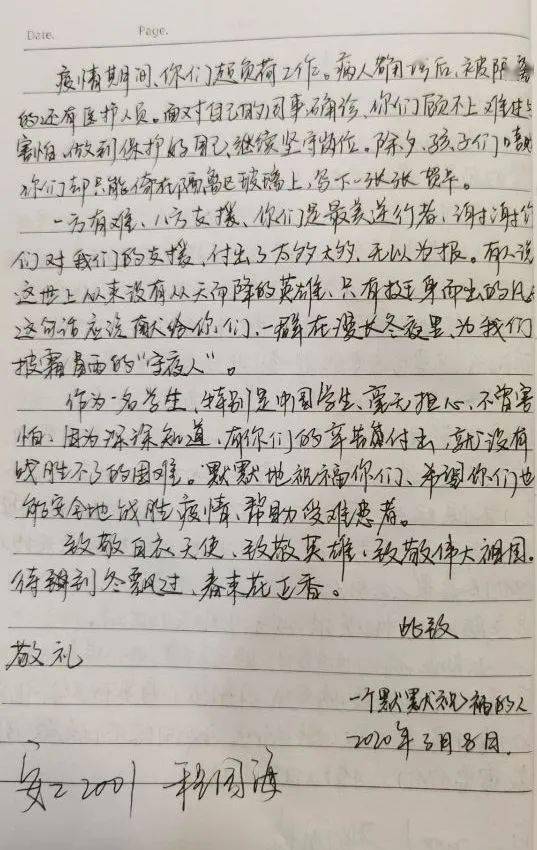 Date.
Page.
疫情期间、你们超负荷工作。病人确诊后、被隔离
的还有医护人员。面对自己的同事确诊、你们顾不上难过与
害怕、做到保护好自己、继续坚守岗位。除夕、孩子们
你们却只能倚在隔离区玻璃上，写下一张张贺卡。
一方有难、八方支援、你们是最美逆行者，谢谢你
们对我们的支援、付出了太多太多，无以为报。有人说
这世上从来没有从天而降的英雄，只有挺身而出的凡
这句话应该献给你们、一群在漫长冬夜里、为我们
披霜冒雨的“守夜人”。
作为一名学生、特别是中国学生、毫无担心、不曾害
怕、因为深深知道，有你们的辛苦付出，就没有
战胜不了的困难。默默地祝福你们、希望你们也
能安全地战胜疫情、帮助受难患者。
致敬白衣天使、致敬英雄、致敬伟大祖国。
待到冬飘过，春来花正香。
此致
敬礼
一个默默祝福的人
2020年3月8日.
安工2001 程国海